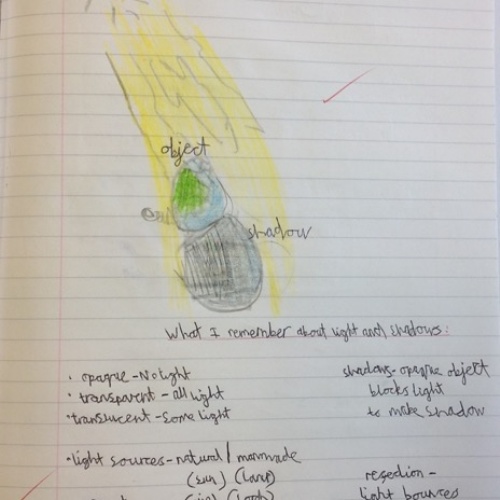 object
shadow
What I remember about light and shadows:
• opaque - No light
• transparent - all light
• translucent - some light
shadows - opaque object
blocks light
to make shadow
• light sources - natural / manmade
(sun) (lamp)
light bounces